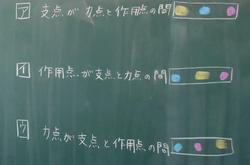 ア 支点が力点と作用点の間
イ 作用点が支点と力点の間
ウ 力点が支点と作用点の間